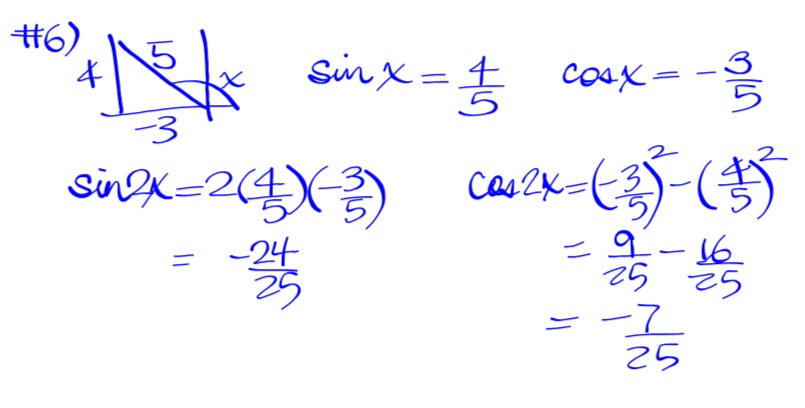 #6) 4 5 x -3 sin x = 4/5 cos x = -3/5
sin2x = 2(4/5)(-3/5) cos2x = (-3/5)² - (4/5)²
= -24/25 = 9/25 - 16/25
= -7/25